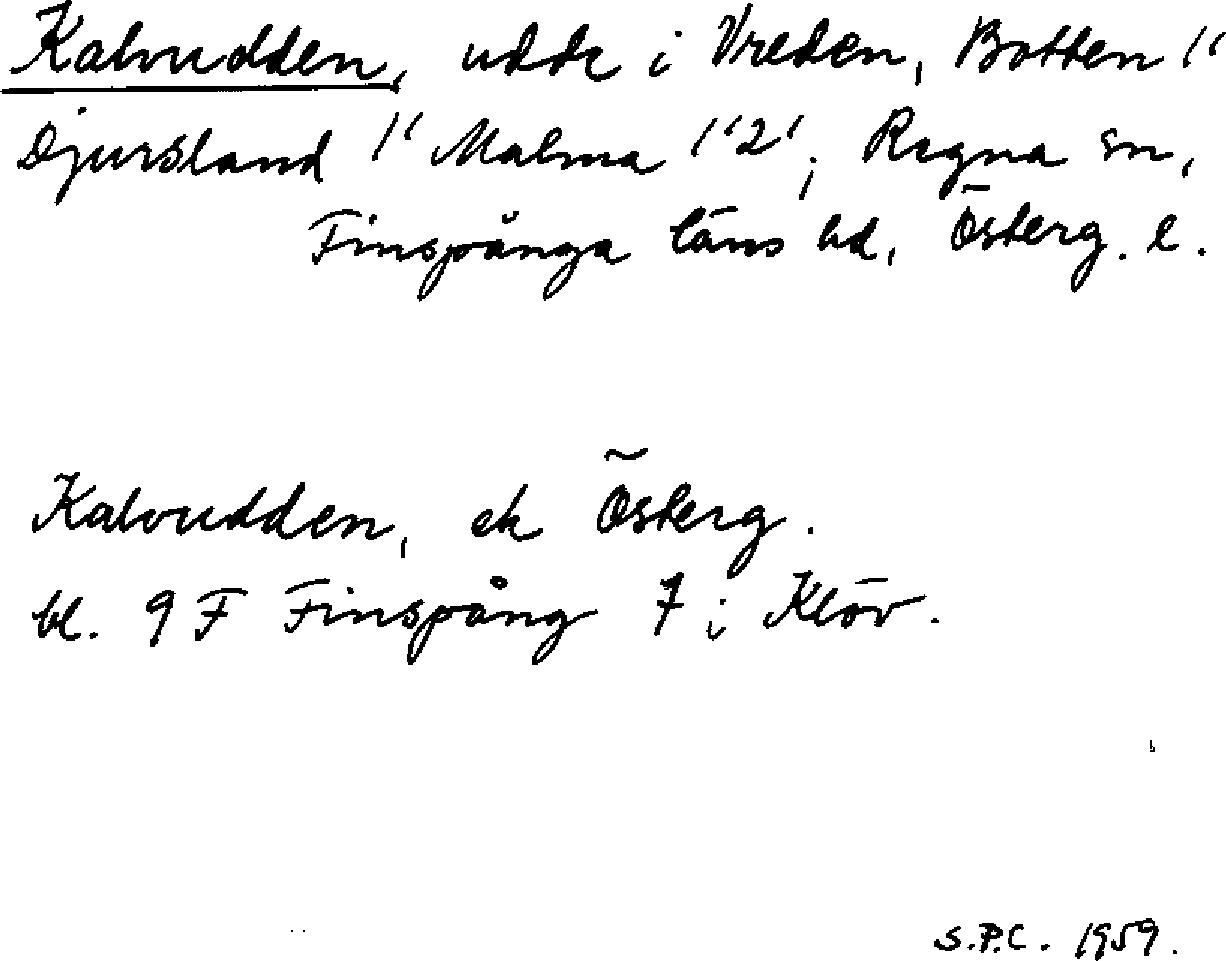 Kalvudden, udde i Vreden, Botten 1/1
Djursland 1/1 Malma 1/1 2/1, Regna sn,
Finspånga läns hd, Österg. l.
Kalvudden, ek Österg.
bl. 9 F Finspång 7 i Klöv.
S.P.C. 1959.